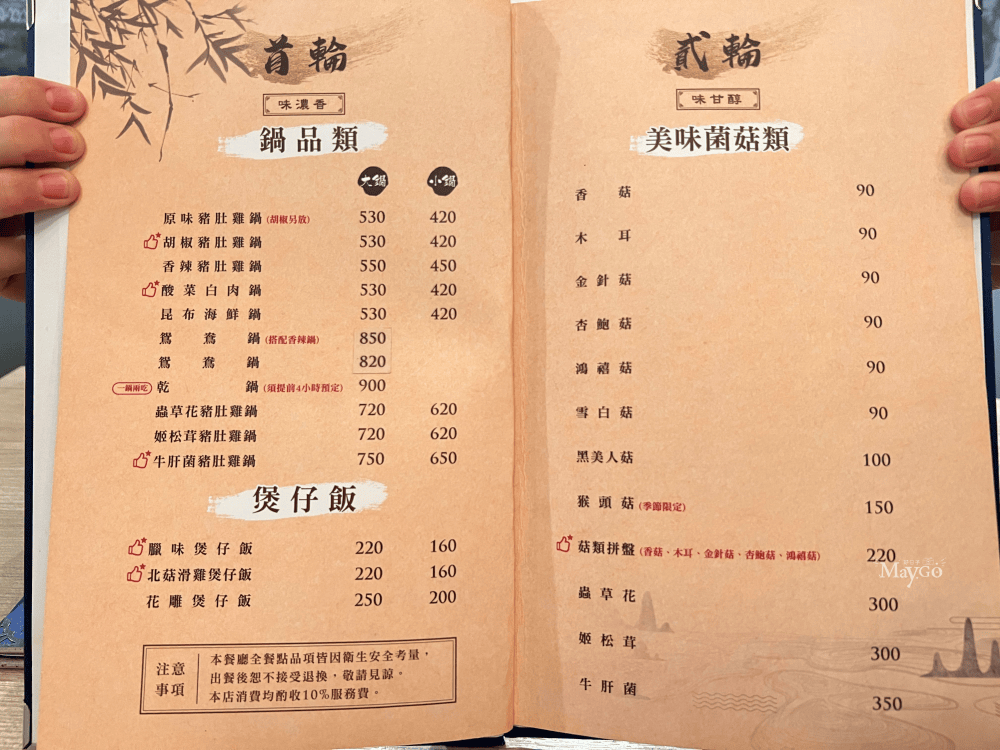 首輪
味濃香
鍋品類
大鍋 小鍋
原味豬肚雞鍋(胡椒另放) 530 420
胡椒豬肚雞鍋 530 420
香辣豬肚雞鍋 550 450
酸菜白肉鍋 530 420
昆布海鮮鍋 530 420
鴛鴦鍋(搭配香辣鍋) 850
鴛鴦鍋 820
一鍋兩吃 乾鍋(須提前4小時預定) 900
蟲草花豬肚雞鍋 720 620
姬松茸豬肚雞鍋 720 620
牛肝菌豬肚雞鍋 750 650
煲仔飯
臘味煲仔飯 220 160
北菇滑雞煲仔飯 220 160
花雕煲仔飯 250 200
注意事項
本餐廳全餐點品項皆因衛生安全考量，
出餐後恕不接受退換，敬請見諒。
本店消費均酌收10%服務費。
貳輪
味甘醇
美味菌菇類
香菇 90
木耳 90
金針菇 90
杏鮑菇 90
鴻禧菇 90
雪白菇 90
黑美人菇 100
猴頭菇(季節限定) 150
菇類拼盤(香菇、木耳、金針菇、杏鮑菇、鴻禧菇) 220
MayGo
蟲草花 300
姬松茸 300
牛肝菌 350